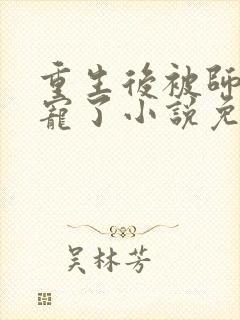 重生後被師
寵了小說免
吴林芳